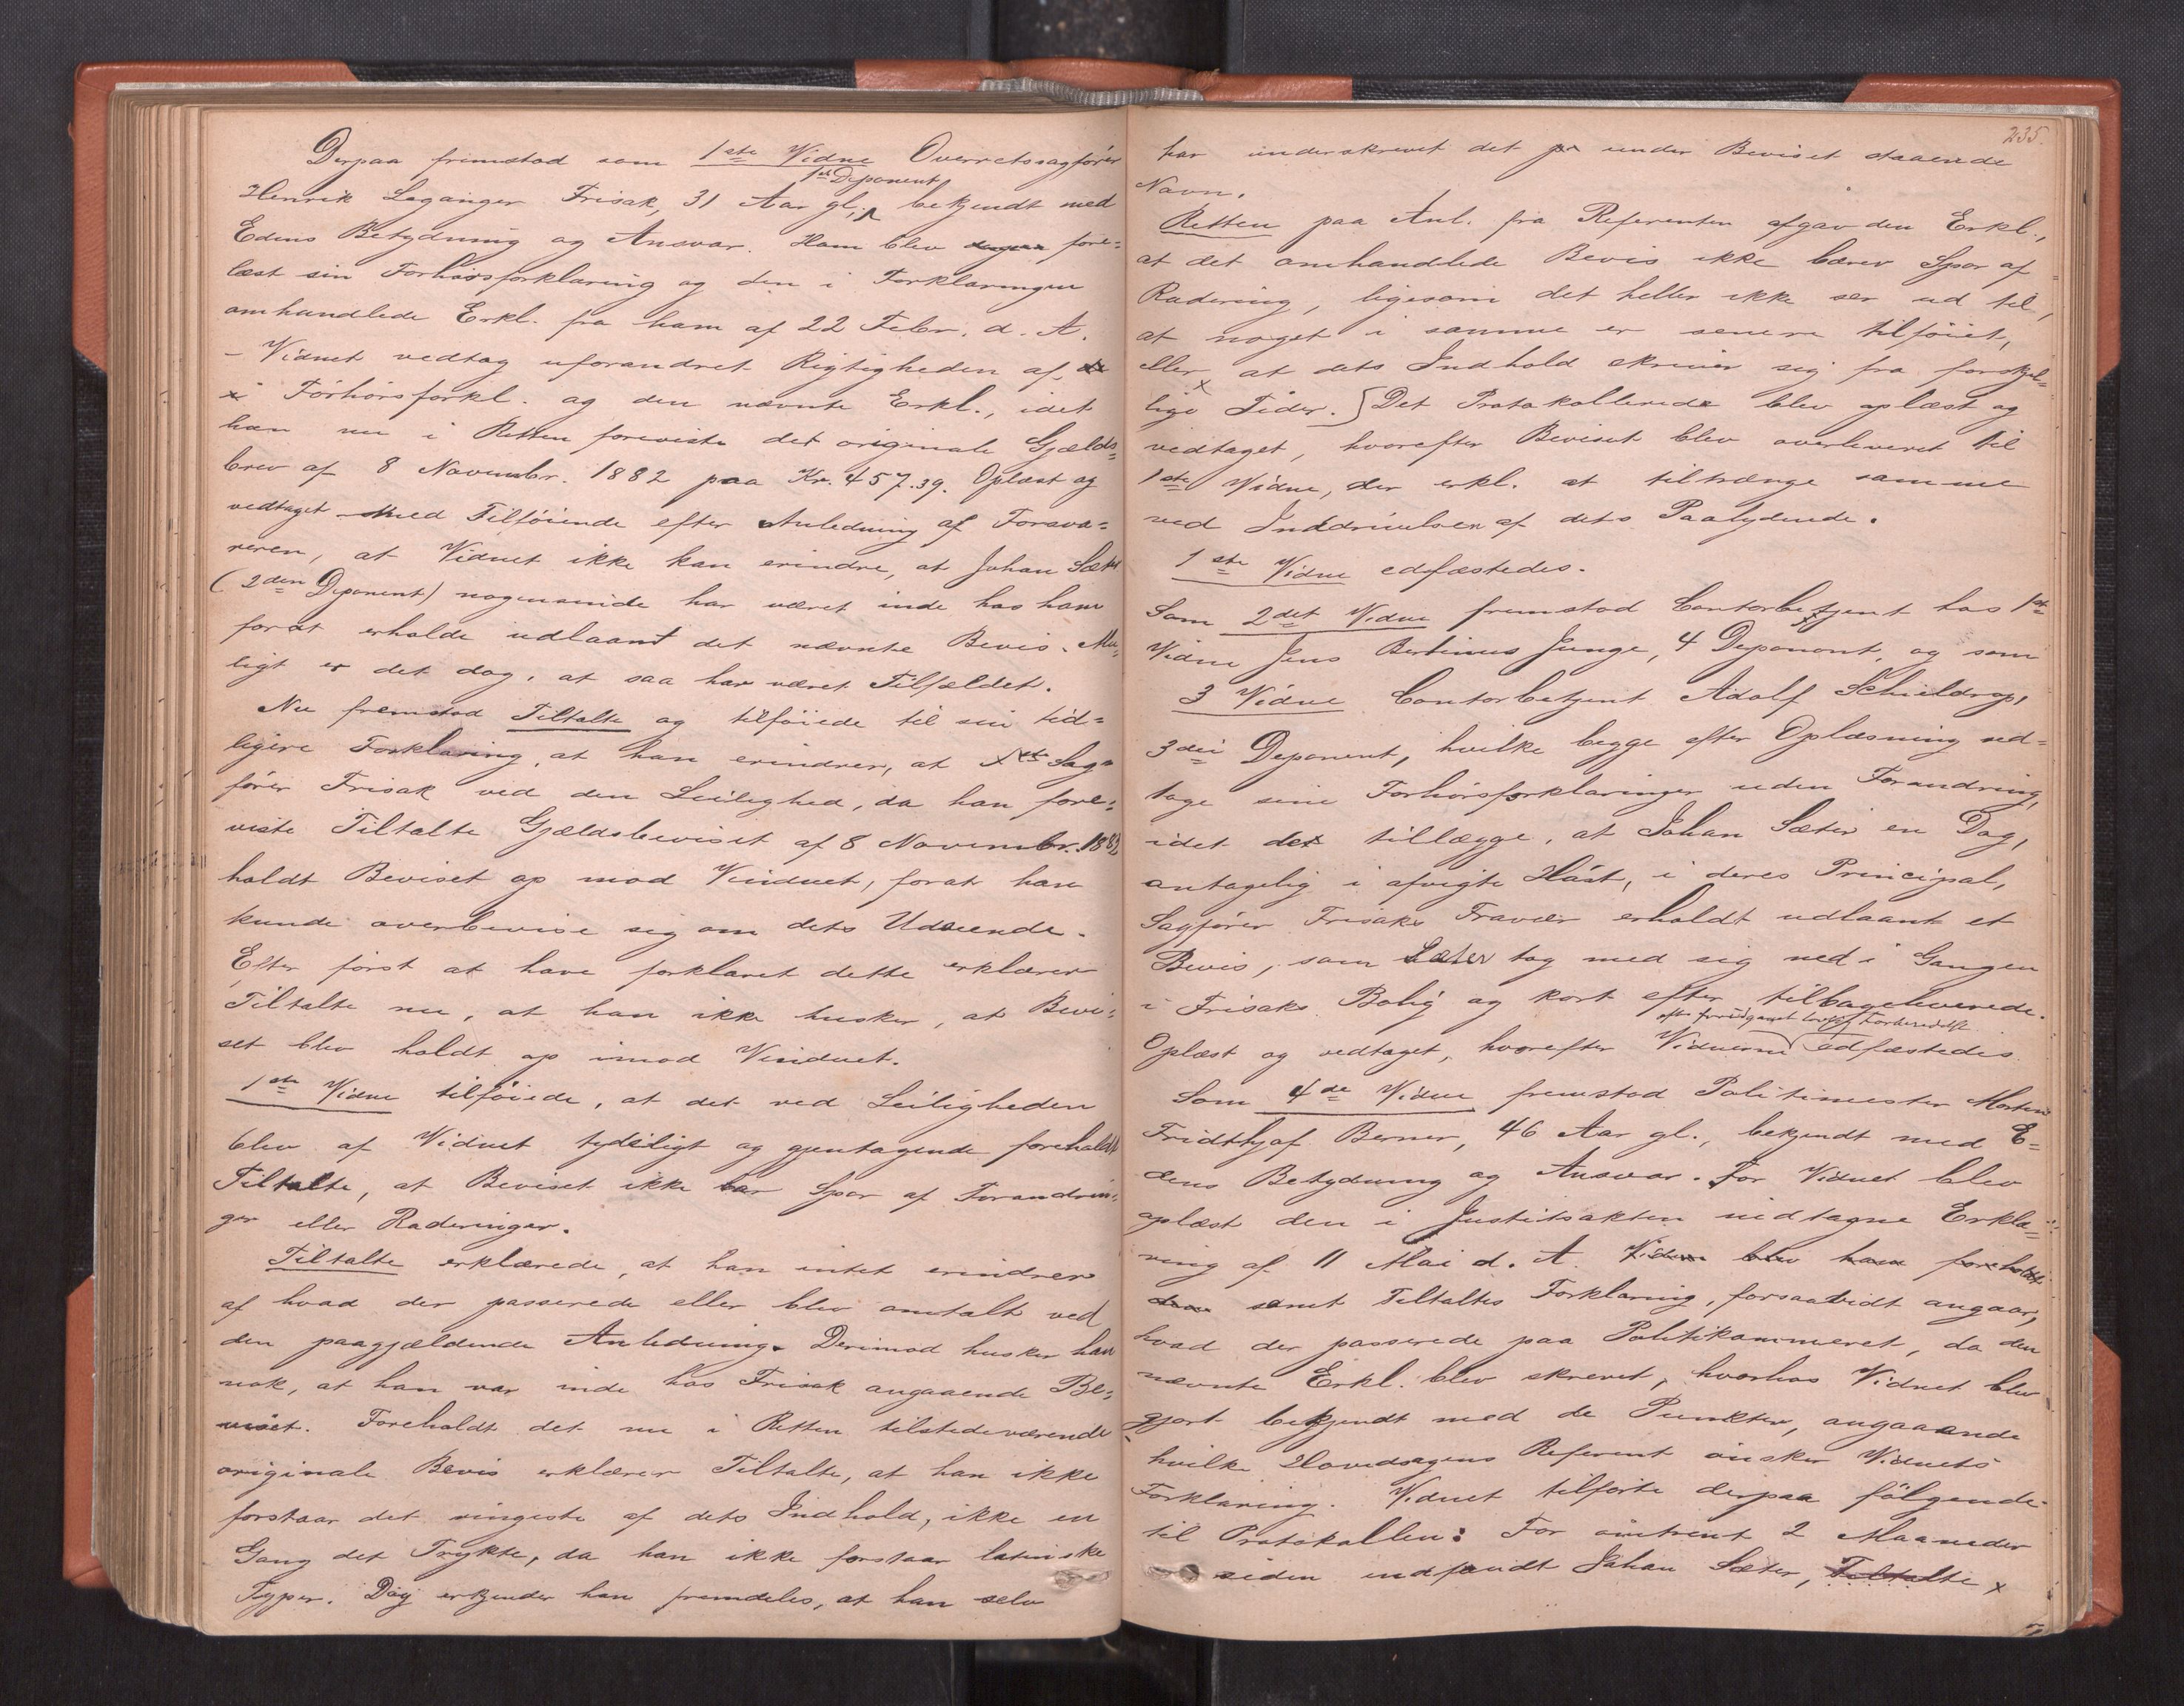 Derpaa fremstod som 1ste Vidne Overretssagfører
1ste Deponent
Henrik Leganger Frisak, 31 Aar gl., bekjendt med
Edens Betydning og Ansvar. Ham blev fore=
læst sin Forhørsforklaring og den i Forklaringen
omhandlede Erkl. fra ham af 22 Febr. d. A.
– Vidnet vedtog uforandret Rigtigheden af
Forhørsforkl. og den nævnte Erkl., idet
han nu i Retten foreviste det originale Gjælds=
brev af 8 Novembr. 1882 paa Kr. 457.39. Oplæst og
vedtaget med Tilføiende efter Anledning af Forsva=
reren, at Vidnet ikke kan erindre, at Johan Sæter
(2den Deponent) nogensinde har været inde hos ham
forat erholde udlaant det nævnte Bevis. Mu=
ligt er det dog, at saa har været Tilfældet.
Nu fremstod Tiltalte og tilføiede til sin tid=
ligere Forklaring, at han erindrer, at Sag=
fører Frisak ved den Leilighed, da han fore=
viste Tiltalte Gjældsbeviset af 8 Novembr. 1882
holdt Beviset op mod Vinduet, forat han
kunde overbevise sig om dets Udseende.
Efter først at have forklaret dette erklærer
Tiltalte nu, at han ikke husker, at Bevi=
set blev holdt op imod Vinduet.
1ste Vidne tilføiede, at det ved Leiligheden
blev af Vidnet tydeligt og gjentagende foreholdt
Tiltalte, at Beviset ikke bar Spor af Forandrin=
ger eller Raderinger.
Tiltalte erklærede, at han intet erindrer
af hvad der passerede eller blev omtalt ved
den paagjældende Anledning. Derimod husker han
nok, at han var inde hos Frisak angaaende Be=
viset. Foreholdt det nu i Retten tilstedeværende
originale Bevis erklærer Tiltalte, at han ikke
forstaar det ringeste af dets Indhold, ikke en
Gang det Trykte, da han ikke forstaar latinske
Typer. Dog erkjender han fremdeles, at han selv
235.
har underskrevet det under Beviset staaende
Navn.
Retten paa Anl. fra Referenten afgav den Erkl.,
at det omhandlede Bevis ikke bærer Spor af
Radering, ligesom det heller ikke ser ud til,
at noget i samme er senere tilføiet,
eller at dets Indhold skriver sig fra forskjel=
lige Tider. Det Protokollerede blev oplæst og
vedtaget, hvorefter Beviset blev overleveret til
1ste Vidne, der erkl. at tiltrænge samme
ved Inddrivelsen af dets Paalydende.
1ste Vidne edfæstedes.
Som 2det Vidne fremstod Contorbetjent hos 1ste
Vidne Jens Bertinus Junge, 4 Deponent, og som
3 Vidne Contorbetjent Adolf Schieldrop,
3die Deponent, hvilke begge efter Oplæsning ved=
tage sine Forhørsforklaringer uden Forandring,
idet de tillægge, at Johan Sæter en Dag,
antagelig i afvigte Høst, i deres Principal,
Sagfører Frisaks Fravær erholdt udlaant et
Bevis, som Sæter tog med sig ned i Gangen
i Frisaks Bolig og kort efter tilbageleverede.
efter foreudgaaet lovlig Forberedelse
Oplæst og vedtaget, hvorefter Vidnerne edfæstedes.
Som 4de Vidne fremstod Politimester Morten
Fridthjof Berner, 46 Aar gl., bekjendt med E=
dens Betydning og Ansvar. For Vidnet blev
oplæst den i Justitsakten indtagne Erklæ=
ring af 11 Mai d. A. Vidnet blev ham foreholdt
samt Tiltaltes Forklaring, forsaavidt angaar,
hvad der passerede paa Politikammeret, da den
nævnte Erkl. blev skrevet, hvorhos Vidnet blev
gjort bekjendt med de Punkter, angaaende
hvilke Hovedsagens Referent ønsker Vidnets
Forklaring. Vidnet tilførte derpaa følgende
til Protokollen: For omtrent 2 Maaneder
siden indfandt Johan Sæter, Tiltalte